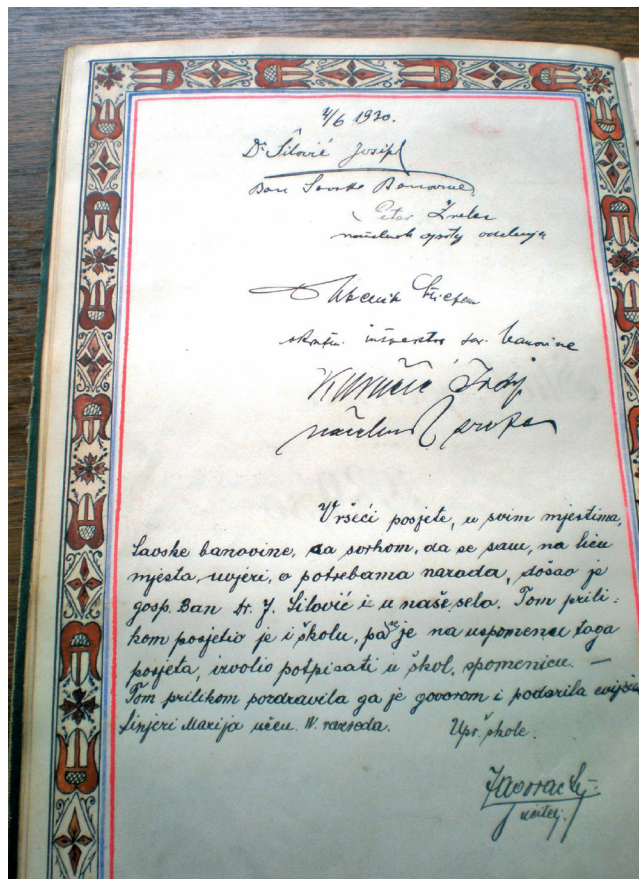 4/6 1930.
Dr Šilović Josip
Ban Savske Banovine
Petar Zrelec
načelnik općeg odelenja
Stjepan
inženjer sav. banovine
načelnik
Vršeći posjete, u svim mjestima,
Savske banovine, sa svrhom, da se sam, na licu
mjesta, uvjeri, o potrebama naroda, došao je
gosp. Ban dr. J. Šilović i u naše selo. Tom prili-
kom posjetio je i školu, pa se je na uspomenu toga
posjeta, izvolio potpisati u škol. spomenicu. —
Tom prilikom pozdravila ga je govorom i podarila cvijećem
Šinjeri Marija učen. IV. razreda. Upr. škole:
učitelj.